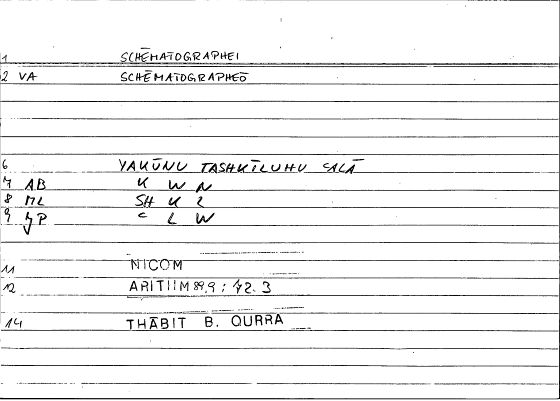 1 SCHĒMATOGRAPHEI
2 VA SCHĒMATOGRAPHEŌ
6 YAKŪNU TASHKĪLUHU CALĀ
7 AB K W N
8 ML SH K L
9 JP C L W
11 NICOM
12 ARITHM 89,9 : 72.3
14 THĀBIT B. QURRA